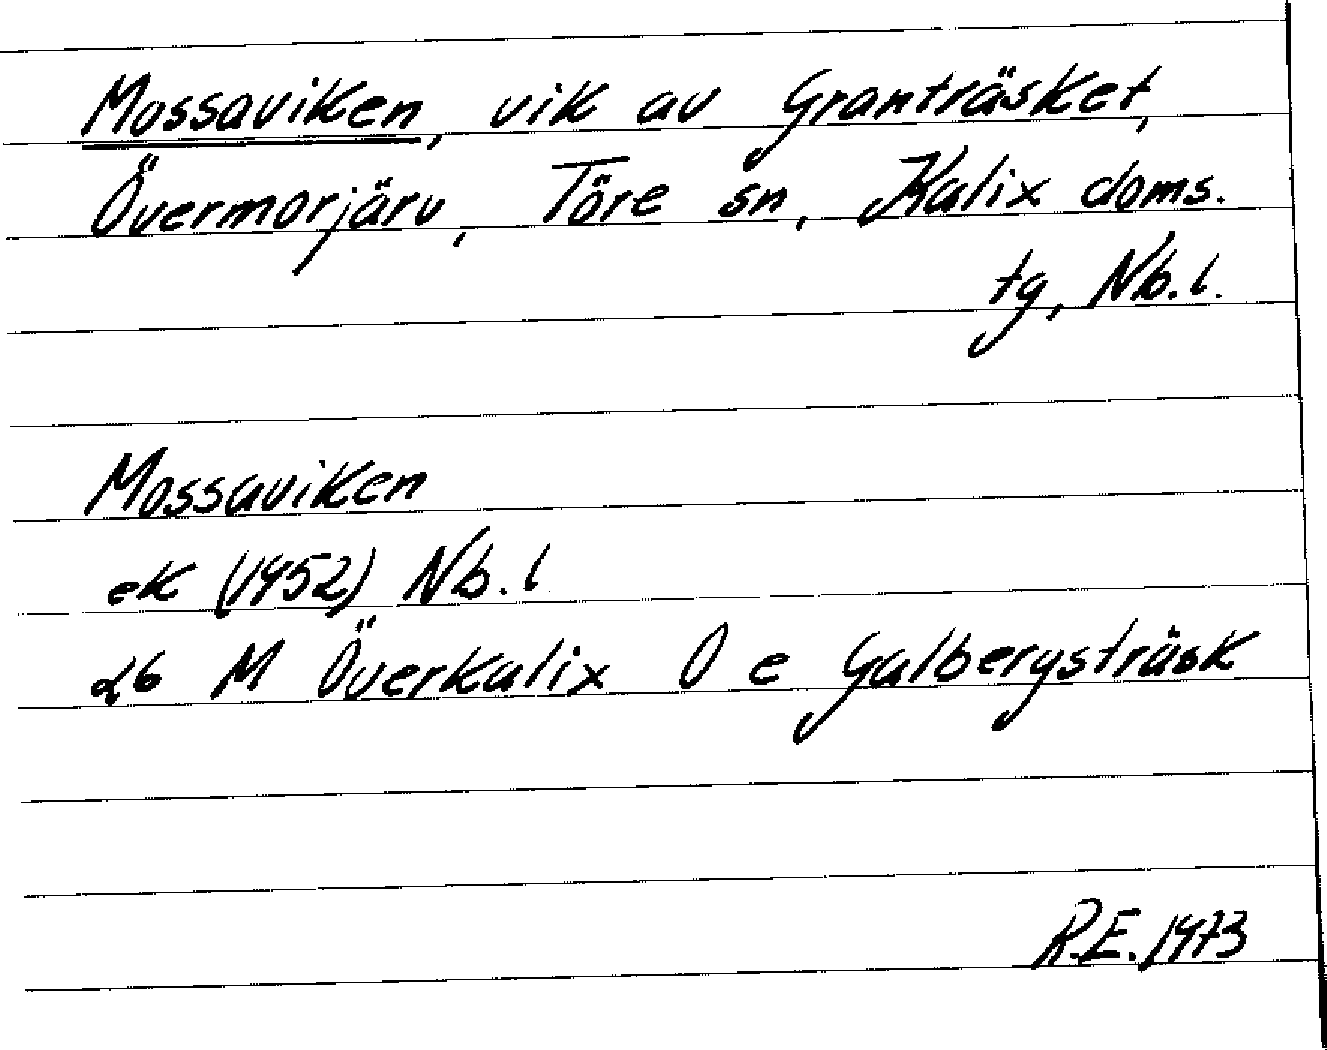 Mossaviken, vik av Granträsket,
Övermorjärv, Töre sn, Kalix doms.
tg, Nb.l.
Mossaviken
ek (1952) Nb.l
26 M Överkalix O e Galbergsträsk
R.E. 1973